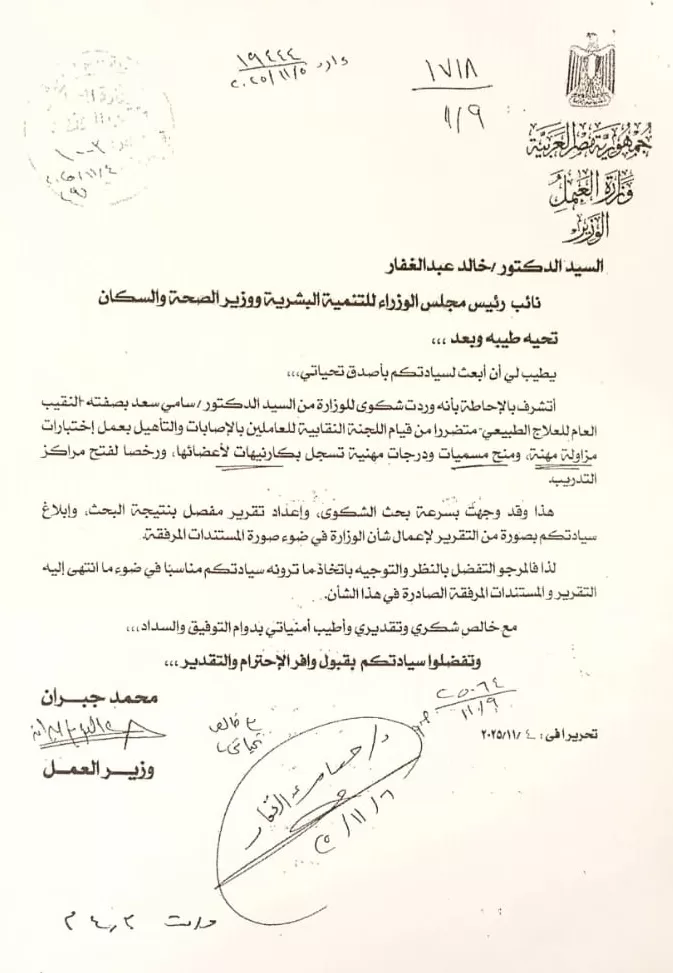 ١٩٤٤٤
٢٠٢٥/١١/٥
وارد
١٧١٨
١١/٩
جمهورية مصر العربية
وزارة العمل
الوزير
السيد الدكتور /خالد عبدالغفار
نائب رئيس مجلس الوزراء للتنمية البشرية ووزير الصحة والسكان
تحيه طيبه وبعد ،،،
يطيب لي أن أبعث لسيادتكم بأصدق تحياتي،،،
أتشرف بالإحاطة بأنه وردت شكوى للوزارة من السيد الدكتور /سامي سعد بصفته "النقيب
العام للعلاج الطبيعي" متضررا من قيام اللجنة النقابية للعاملين بالإصابات والتأهيل بعمل إختبارات
مزاولة مهنة، ومنح مسميات ودرجات مهنية تسجل بكارنيهات لأعضائها، ورخصا لفتح مراكز
التدريب.
هذا وقد وجهتُ بسرعة بحث الشكوى، وإعداد تقرير مفصل بنتيجة البحث، وإبلاغ
سيادتكم بصورة من التقرير لإعمال شأن الوزارة في ضوء صورة المستندات المرفقة.
لذا فالمرجو التفضل بالنظر والتوجيه باتخاذ ما ترونه سيادتكم مناسبًا في ضوء ما انتهى إليه
التقرير و المستندات المرفقة الصادرة في هذا الشأن.
مع خالص شكري وتقديري وأطيب أمنياتي بدوام التوفيق والسداد،،،
وتفضلوا سيادتكم بقبول وافر الإحترام والتقدير ،،،
محمد جبران
وزير العمل
٢٥٠٦٤
١١/٩
تحريرا فى : ٤ /٢٠٢٥/١١
مع خالص
تحياتي
د/حسام عبدالغفار